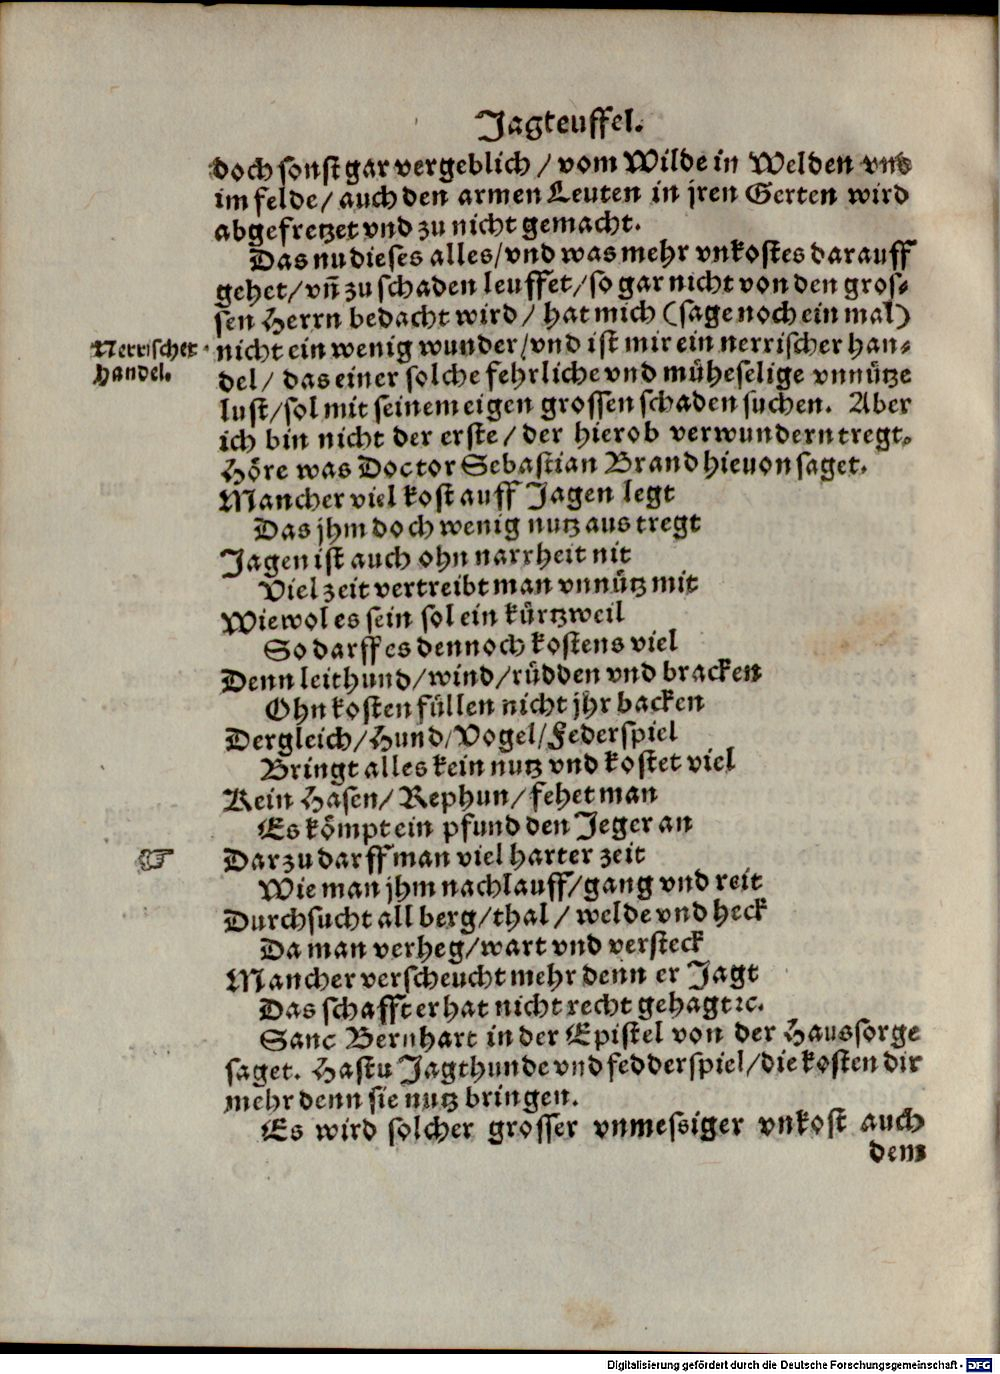 Jagteuffel.
doch sonst gar vergeblich / vom Wilde in Welden vnd
im felde / auch den armen Leuten in jren Gerten wird
abgefretzet vnd zu nicht gemacht.
Das nu dieses alles / vnd was mehr vnkostes darauff
gehet / vñ zu schaden leuffet / so gar nicht von den gros-
sen Herrn bedacht wird / hat mich (sage noch ein mal)
Nerrischer
handel.
nicht ein wenig wunder / vnd ist mir ein nerrischer han-
del / das einer solche fehrliche vnd müheselige vnnütze
lust / sol mit seinem eigen grossen schaden suchen. Aber
ich bin nicht der erste / der hierob verwundern tregt.
Höre was Doctor Sebastian Brand hieuon saget.
Mancher viel kost auff Jagen legt
Das jhm doch wenig nutz aus tregt
Jagen ist auch ohn narrheit nit
Viel zeit vertreibt man vnnütz mit
Wiewol es sein sol ein kürtzweil
So darff es dennoch kostens viel
Denn leithund / wind / rüdden vnd bracken
Ohn kosten füllen nicht jhr backen
Dergleich / Hund / Vogel / Federspiel
Bringt alles kein nutz vnd kostet viel
Kein Hasen / Rephun / fehet man
Es kömpt ein pfund den Jeger an
☞ Darzu darff man viel harter zeit
Wie man jhm nachlauff / gang vnd reit
Durchsucht all berg / thal / welde vnd heck
Da man verheg / wart vnd versteck
Mancher verscheucht mehr denn er Jagt
Das schafft er hat nicht recht gehagt ꝛc.
Sanc Bernhart in der Epistel von der Haussorge
saget. Hastu Jagthunde vnd fedderspiel / die kosten dir
mehr denn sie nutz bringen.
Es wird solcher grosser vnmessiger vnkost auch
dem
Digitalisierung gefördert durch die Deutsche Forschungsgemeinschaft - DFG